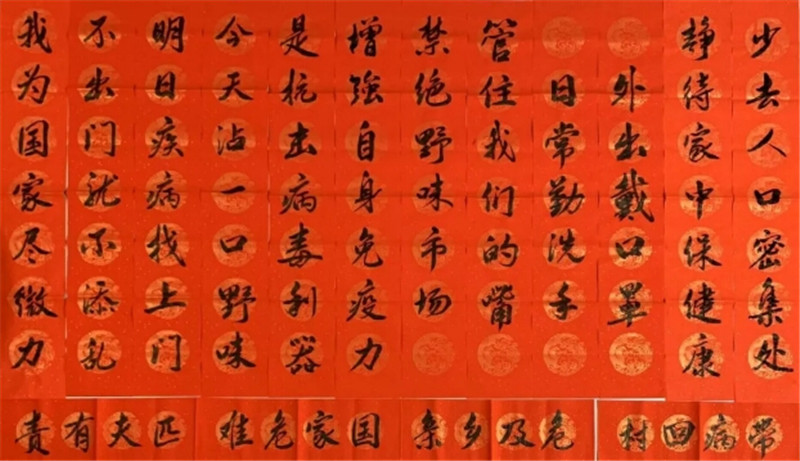 少去人口密集处
静待家中保健康
外出戴口罩
日常勤洗手
管住我们的嘴
禁绝野味市场
增强自身免疫力
是抗击病毒利器
今天沾一口野味
明日疾病找上门
不出门就不添乱
我为国家尽微力
带病回村
危及乡亲
国家危难
匹夫有责